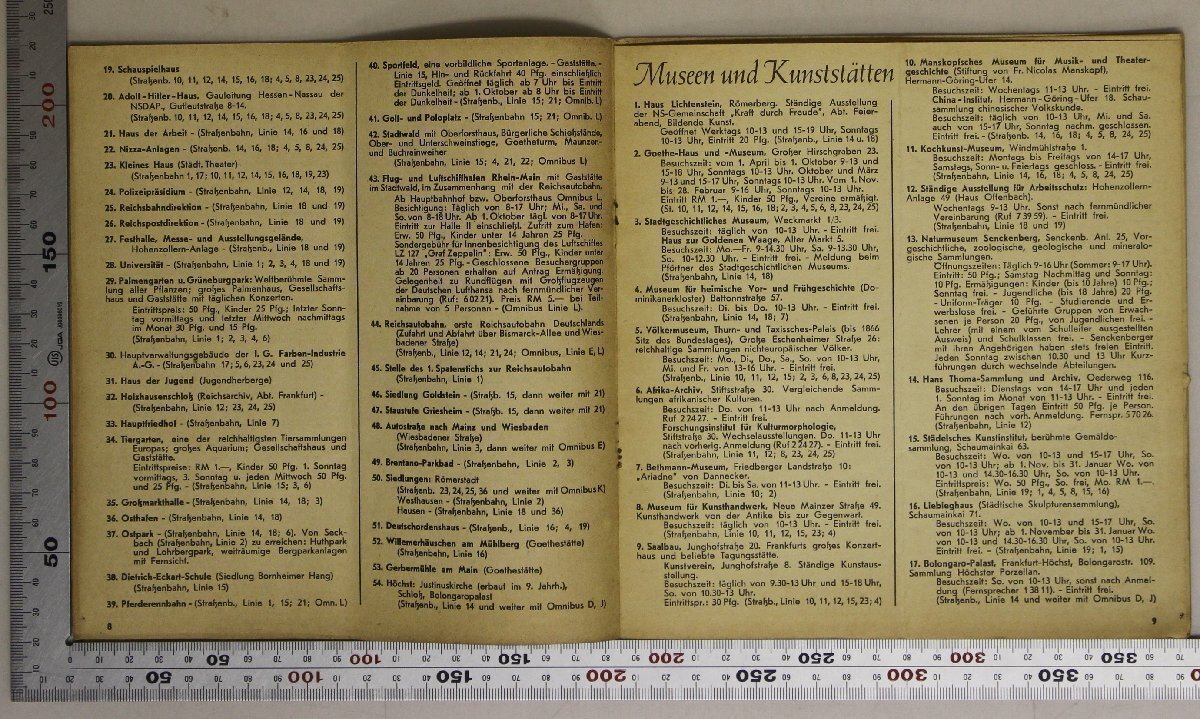 19. Schauspielhaus
(Straßenb. 10, 11, 12, 14, 15, 16, 18; 4, 5, 8, 23, 24, 25)
20. Adolf-Hitler-Haus, Gauleitung Hessen-Nassau der
NSDAP., Gutleutstraße 8-14.
(Straßenb. 10, 11, 12, 14, 15, 16, 18; 4, 5, 8, 23, 24, 25)
21. Haus der Arbeit - (Straßenbahn, Linie 14, 16 und 18)
22. Nizza-Anlagen - (Straßenb. 14, 16, 18; 4, 5, 8, 24, 25)
23. Kleines Haus (Städt. Theater)
(Straßenbahn 1, 17; 10, 11, 12, 14, 15, 16, 18, 19, 23)
24. Polizeipräsidium - (Straßenbahn, Linie 12, 14, 18, 19)
25. Reichsbahndirektion - (Straßenbahn, Linie 18 und 19)
26. Reichspostdirektion - (Straßenbahn, Linie 18 und 19)
27. Festhalle, Messe- und Ausstellungsgelände,
Hohenzollern-Anlage - (Straßenb., Linie 18 und 19)
28. Universität - (Straßenbahn, Linie 1; 2, 3, 4, 18 und 19)
29. Palmengarten u. Grüneburgpark: Weltberühmte Samm-
lung aller Pflanzen; großes Palmenhaus, Gesellschafts-
haus und Gaststätte mit täglichen Konzerten.
Eintrittspreis: 50 Pfg., Kinder 25 Pfg.; letzter Sonn-
tag vormittags und letzter Mittwoch nachmittags
im Monat 30 Pfg. und 15 Pfg.
(Straßenbahn, Linie 1; 2, 3, 4, 6)
30. Hauptverwaltungsgebäude der I. G. Farben-Industrie
A.-G. - (Straßenbahn 17; 5, 6, 23, 24 und 25)
31. Haus der Jugend (Jugendherberge)
32. Holzhausenschloß (Reichsarchiv, Abt. Frankfurt) -
(Straßenbahn, Linie 12; 23, 24, 25)
33. Hauptfriedhof - (Straßenbahn, Linie 7)
34. Tiergarten, eine der reichhaltigsten Tiersammlungen
Europas; großes Aquarium; Gesellschaftshaus und
Gaststätte.
Eintrittspreise: RM 1.—, Kinder 50 Pfg. 1. Sonntag
vormittags, 3. Sonntag u. jeden Mittwoch 50 Pfg.
und 25 Pfg. - (Straßenbahn, Linie 15; 3, 6)
35. Großmarkthalle - (Straßenbahn, Linie 14, 18; 3)
36. Osthafen - (Straßenbahn, Linie 14, 18)
37. Ostpark - (Straßenbahn, Linie 14, 18; 6). Von Seck-
bach (Straßenbahn, Linie 2) zu erreichen: Huthpark
und Lohrbergpark, weiträumige Bergparkanlagen
mit Fernsicht.
38. Dietrich-Eckart-Schule (Siedlung Bornheimer Hang)
(Straßenbahn, Linie 15)
39. Pferderennbahn - (Straßenb., Linie 1, 15; 21; Omn. L)
8
40. Sportfeld, eine vorbildliche Sportanlage. - Gaststätte. -
Linie 15, Hin- und Rückfahrt 40 Pfg. einschließlich
Eintrittsgeld. Geöffnet täglich ab 7 Uhr bis Eintritt
der Dunkelheit; ab 1. Oktober ab 8 Uhr bis Eintritt
der Dunkelheit - (Straßenb., Linie 15; 21; Omnib. L)
41. Golf- und Poloplatz - (Straßenbahn 15; 21; Omnib. L)
42. Stadtwald mit Oberforsthaus, Bürgerliche Schießstände,
Ober- und Unterschweinstiege, Goetheturm, Maunzen-
und Buchrainweiher
(Straßenbahn, Linie 15; 4, 21, 22; Omnibus L)
43. Flug- und Luftschiffhafen Rhein-Main mit Gaststätte
im Stadtwald, im Zusammenhang mit der Reichsautobahn.
Ab Hauptbahnhof bzw. Oberforsthaus Omnibus L.
Besichtigung: Täglich von 8-17 Uhr; Mi., Sa. und
So. von 8-18 Uhr. Ab 1. Oktober tägl. von 8-17 Uhr.
Eintritt zur Halle II einschließl. Zutritt zum Hafen:
Erw. 50 Pfg., Kinder unter 14 Jahren 25 Pfg.
Sondergebühr für Innenbesichtigung des Luftschiffes
LZ 127 „Graf Zeppelin": Erw. 50 Pfg., Kinder unter
14 Jahren 25 Pfg. - Geschlossenen Besuchergruppen
ab 20 Personen erhalten auf Antrag Ermäßigung.
Gelegenheit zu Rundflügen mit Großflugzeugen
der Deutschen Lufthansa nach fernmündlicher Ver-
einbarung (Ruf: 60221). Preis RM 5.— bei Teil-
nahme von 5 Personen - (Omnibus Linie L).
44. Reichsautobahn, erste Reichsautobahn Deutschlands
(Zufahrt und Abfahrt über Bismarck-Allee und Wies-
badener Straße)
(Straßenbahn, Linie 12, 14; 21, 24; Omnibus, Linie E, L)
45. Stelle des 1. Spatenstichs zur Reichsautobahn
(Straßenbahn, Linie 1)
46. Siedlung Goldstein - (Straßb. 15, dann weiter mit 21)
47. Staustufe Griesheim - (Straßb. 15, dann weiter mit 21)
48. Autostraße nach Mainz und Wiesbaden
(Wiesbadener Straße)
(Straßenbahn, Linie 3, dann weiter mit Omnibus E)
49. Brentano-Parkbad - (Straßenbahn, Linie 2, 3)
50. Siedlungen: Römerstadt
(Straßenb. 23, 24, 25, 36 und weiter mit Omnibus K)
Westhausen - (Straßenbahn, Linie 2)
Hausen - (Straßenbahn, Linie 18 und 36)
51. Deutschordenshaus - (Straßenb., Linie 16; 4, 19)
52. Willemerhäuschen am Mühlberg (Goethestätte)
(Straßenbahn, Linie 16)
53. Gerbermühle am Main (Goethestätte)
54. Höchst: Justinuskirche (erbaut im 9. Jahrh.),
Schloß, Bolongaropalast
(Straßenb., Linie 14 und weiter mit Omnibus D, J)
Museen und Kunststätten
1. Haus Lichtenstein, Römerberg. Ständige Ausstellung
der NS-Gemeinschaft „Kraft durch Freude", Abt. Feier-
abend, Bildende Kunst.
Geöffnet Werktags 10-13 und 15-19 Uhr, Sonntags
10-13 Uhr, Eintritt 20 Pfg. (Straßenb., Linie 14 u. 18)
2. Goethe-Haus und -Museum, Großer Hirschgraben 23.
Besuchszeit: vom 1. April bis 1. Oktober 9-13 und
15-18 Uhr, Sonntags 10-13 Uhr. Oktober und März
9-13 und 15-17 Uhr, Sonntags 10-13 Uhr. Vom 1. Nov.
bis 28. Februar 9-16 Uhr, Sonntags 10-13 Uhr.
Eintritt RM 1.—, Kinder 50 Pfg., Vereine ermäßigt.
(St. 10, 11, 12, 14, 15, 16, 18; 2, 3, 4, 5, 6, 8, 23, 24, 25)
3. Stadtgeschichtliches Museum, Weckmarkt 1/3.
Besuchszeit: täglich von 10-13 Uhr. - Eintritt frei.
Haus zur Goldenen Waage, Alter Markt 5.
Besuchszeit: Mo.—Fr. 9-14.30 Uhr, Sa. 9-13.30 Uhr,
So. 10-12.30 Uhr. - Eintritt frei. - Meldung beim
Pförtner des Stadtgeschichtlichen Museums.
(Straßenbahn, Linie 14, 18)
4. Museum für heimische Vor- und Frühgeschichte (Do-
minikanerkloster) Battonnstraße 57.
Besuchszeit: Di. bis Do. 10-13 Uhr. - Eintritt frei.
(Straßenbahn, Linie 14, 18; 7)
5. Völkermuseum, Thurn- und Taxissches-Palais (bis 1866
Sitz des Bundestages), Große Eschenheimer Straße 26:
reichhaltige Sammlungen nichteuropäischer Völker.
Besuchszeit: Mo., Di., Do., Sa., So. von 10-13 Uhr,
Mi. und Fr. von 13-16 Uhr. - Eintritt frei.
(Straßenb., Linie 10, 11, 12, 15; 2, 3, 6, 8, 23, 24, 25)
6. Afrika-Archiv, Stiftsstraße 30. Vergleichende Samm-
lungen afrikanischer Kulturen.
Besuchszeit: Do. von 11-13 Uhr nach Anmeldung.
Ruf 22427. - Eintritt frei.
Forschungsinstitut für Kulturmorphologie,
Stiftstraße 30. Wechselausstellungen. Do. 11-13 Uhr
nach vorherig. Anmeldung (Ruf 22427). - Eintritt frei.
(Straßenbahn, Linie 11, 12; 8, 23, 24, 25)
7. Bethmann-Museum, Friedberger Landstraße 10:
„Ariadne" von Dannecker.
Besuchszeit: Di. bis Sa. von 11-13 Uhr. - Eintritt frei.
(Straßenbahn, Linie 10; 2)
8. Museum für Kunsthandwerk, Neue Mainzer Straße 49.
Kunsthandwerk von der Antike bis zur Gegenwart.
Besuchszeit: täglich von 10-13 Uhr. - Eintritt frei.
(Straßenbahn, Linie 10, 11, 12, 15, 23; 4)
9. Saalbau, Junghofstraße 20. Frankfurts großes Konzert-
haus und beliebte Tagungsstätte.
Kunstverein, Junghofstraße 8. Ständige Kunstaus-
stellung.
Besuchszeit: täglich von 9.30-13 Uhr und 15-18 Uhr,
So. von 10.30-13 Uhr.
Eintrittspr.: 30 Pfg. (Straßb., Linie 10, 11, 12, 15, 23; 4)
10. Manskopfsches Museum für Musik- und Theater-
geschichte (Stiftung von Fr. Nicolas Manskopf),
Hermann-Göring-Ufer 14.
Besuchszeit: Wochentags 11-13 Uhr. - Eintritt frei.
China-Institut, Hermann-Göring-Ufer 18. Schau-
sammlung chinesischer Volkskunde.
Besuchszeit: täglich von 10-13 Uhr, Mi. und Sa.
auch von 15-17 Uhr, Sonntag nachm. geschlossen.
Eintritt frei. - (Straßenb. 14, 16, 18; 4, 5, 8, 24, 25)
11. Kochkunst-Museum, Windmühlstraße 1.
Besuchszeit: Montags bis Freitags von 14-17 Uhr,
Samstags, Sonn- u. Feiertags geschloss. - Eintritt frei.
(Straßenbahn, Linie 14, 16, 18; 4, 5, 8, 24, 25)
12. Ständige Ausstellung für Arbeitsschutz: Hohenzollern-
Anlage 49 (Haus Offenbach).
Wochentags 9-13 Uhr. Sonst nach fernmündlicher
Vereinbarung (Ruf 73959). - Eintritt frei.
(Straßenbahn, Linie 18 und 19)
13. Naturmuseum Senckenberg, Senckenb. Anl. 25, Vor-
geschichtliche, zoologische, geologische und mineralo-
gische Sammlungen.
Öffnungszeiten: Täglich 9-16 Uhr (Sommer: 9-17 Uhr).
Eintritt: 50 Pfg.; Samstag Nachmittag und Sonntag:
10 Pfg. Ermäßigungen: Kinder (bis 10 Jahre) 10 Pfg.;
Sonntag frei. - Jugendliche (bis 18 Jahre) 20 Pfg.
- Uniform-Träger 10 Pfg. - Studierende und Er-
werbslose frei. - Geführte Gruppen von Erwach-
senen je Person 20 Pfg., von Jugendlichen frei. -
Lehrer (mit einem vom Schulleiter ausgestellten
Ausweis) und Schulklassen frei. - Senckenberger
mit ihren Angehörigen haben stets freien Eintritt.
Jeden Sonntag zwischen 10.30 und 13 Uhr Kurz-
führungen durch wechselnde Abteilungen.
14. Hans Thoma-Sammlung und Archiv, Oederweg 116.
Besuchszeit: Dienstags von 14-17 Uhr und jeden
1. Sonntag im Monat von 11-13 Uhr. - Eintritt frei.
An den übrigen Tagen Eintritt 50 Pfg. je Person.
Führungen nach vorh. Anmeldung. Fernspr. 57026.
(Straßenbahn, Linie 12)
15. Städelsches Kunstinstitut, berühmte Gemälde-
sammlung, Schaumainkai 63.
Besuchszeit: Wo. von 10-13 und 15-17 Uhr, So.
von 10-13 Uhr; ab 1. Nov. bis 31. Januar Wo. von
10-13 und 14.30-16.30 Uhr, So. von 10-13 Uhr.
Eintrittspreis: Wo. 50 Pfg., So. frei, Mo. RM 1.—.
(Straßenbahn, Linie 19; 1, 4, 5, 8, 15, 16)
16. Liebieghaus (Städtische Skulpturensammlung),
Schaumainkai 71.
Besuchszeit: Wo. von 10-13 und 15-17 Uhr, So.
von 10-13 Uhr; ab 1. November bis 31. Januar Wo.
von 10-13 und 14.30-16.30 Uhr, So. von 10-13 Uhr.
Eintritt frei. - (Straßenbahn, Linie 19; 1, 15)
17. Bolongaro-Palast, Frankfurt-Höchst, Bolongarostr. 109.
Sammlung Höchster Porzellan.
Besuchszeit: So. von 10-13 Uhr, sonst nach Anmel-
dung (Fernsprecher 13811). - Eintritt frei.
(Straßenb., Linie 14 und weiter mit Omnibus D, J)
9